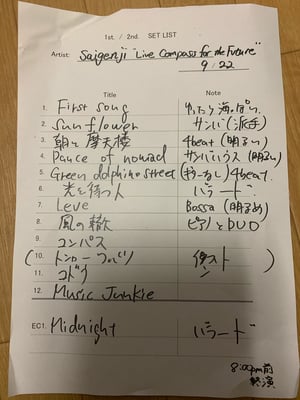 1st. / 2nd. SET LIST
Artist: Saigenji "Live Compass for the Future"
9/22
Title Note
1 First song ゆったり海っぽい
2 Sun flower サンバ(派手)
3 朝と摩天楼 4beat (明るい)
4 Dance of nomad サンバハウス(明るい)
5 Green dolphin street 4beat.
6 光を待つ人 バラード
7 Leve Bossa (明るめ)
8 風の轍 ピアノとDUO
9 コンパス
(10. )
11 コドウ
12 Music Junkie
EC1. Midnight バラード
8:00pm前
終演